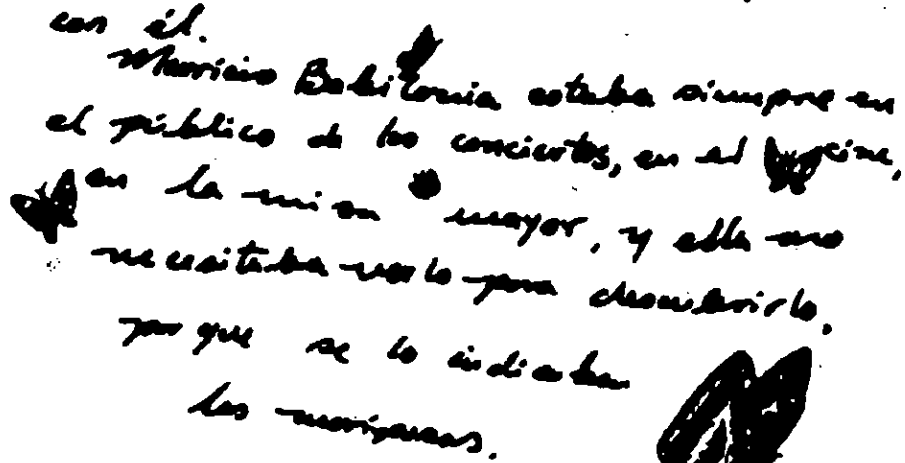 con él.
Mauricio Babilonia estaba siempre en
el público de los conciertos, en el cine,
en la misa mayor, y ella no
necesitaba verlo para descubrirlo,
porque se lo indicaban
las mariposas.